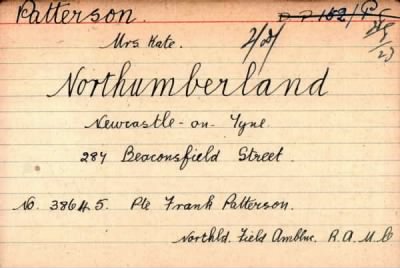 Patterson.
Mrs Kate.
Northumberland
Newcastle-on-Tyne.
287 Beaconsfield Street.
No. 38645. Pte Frank Patterson.
Northld. Field Amblnc. R.A.M.C